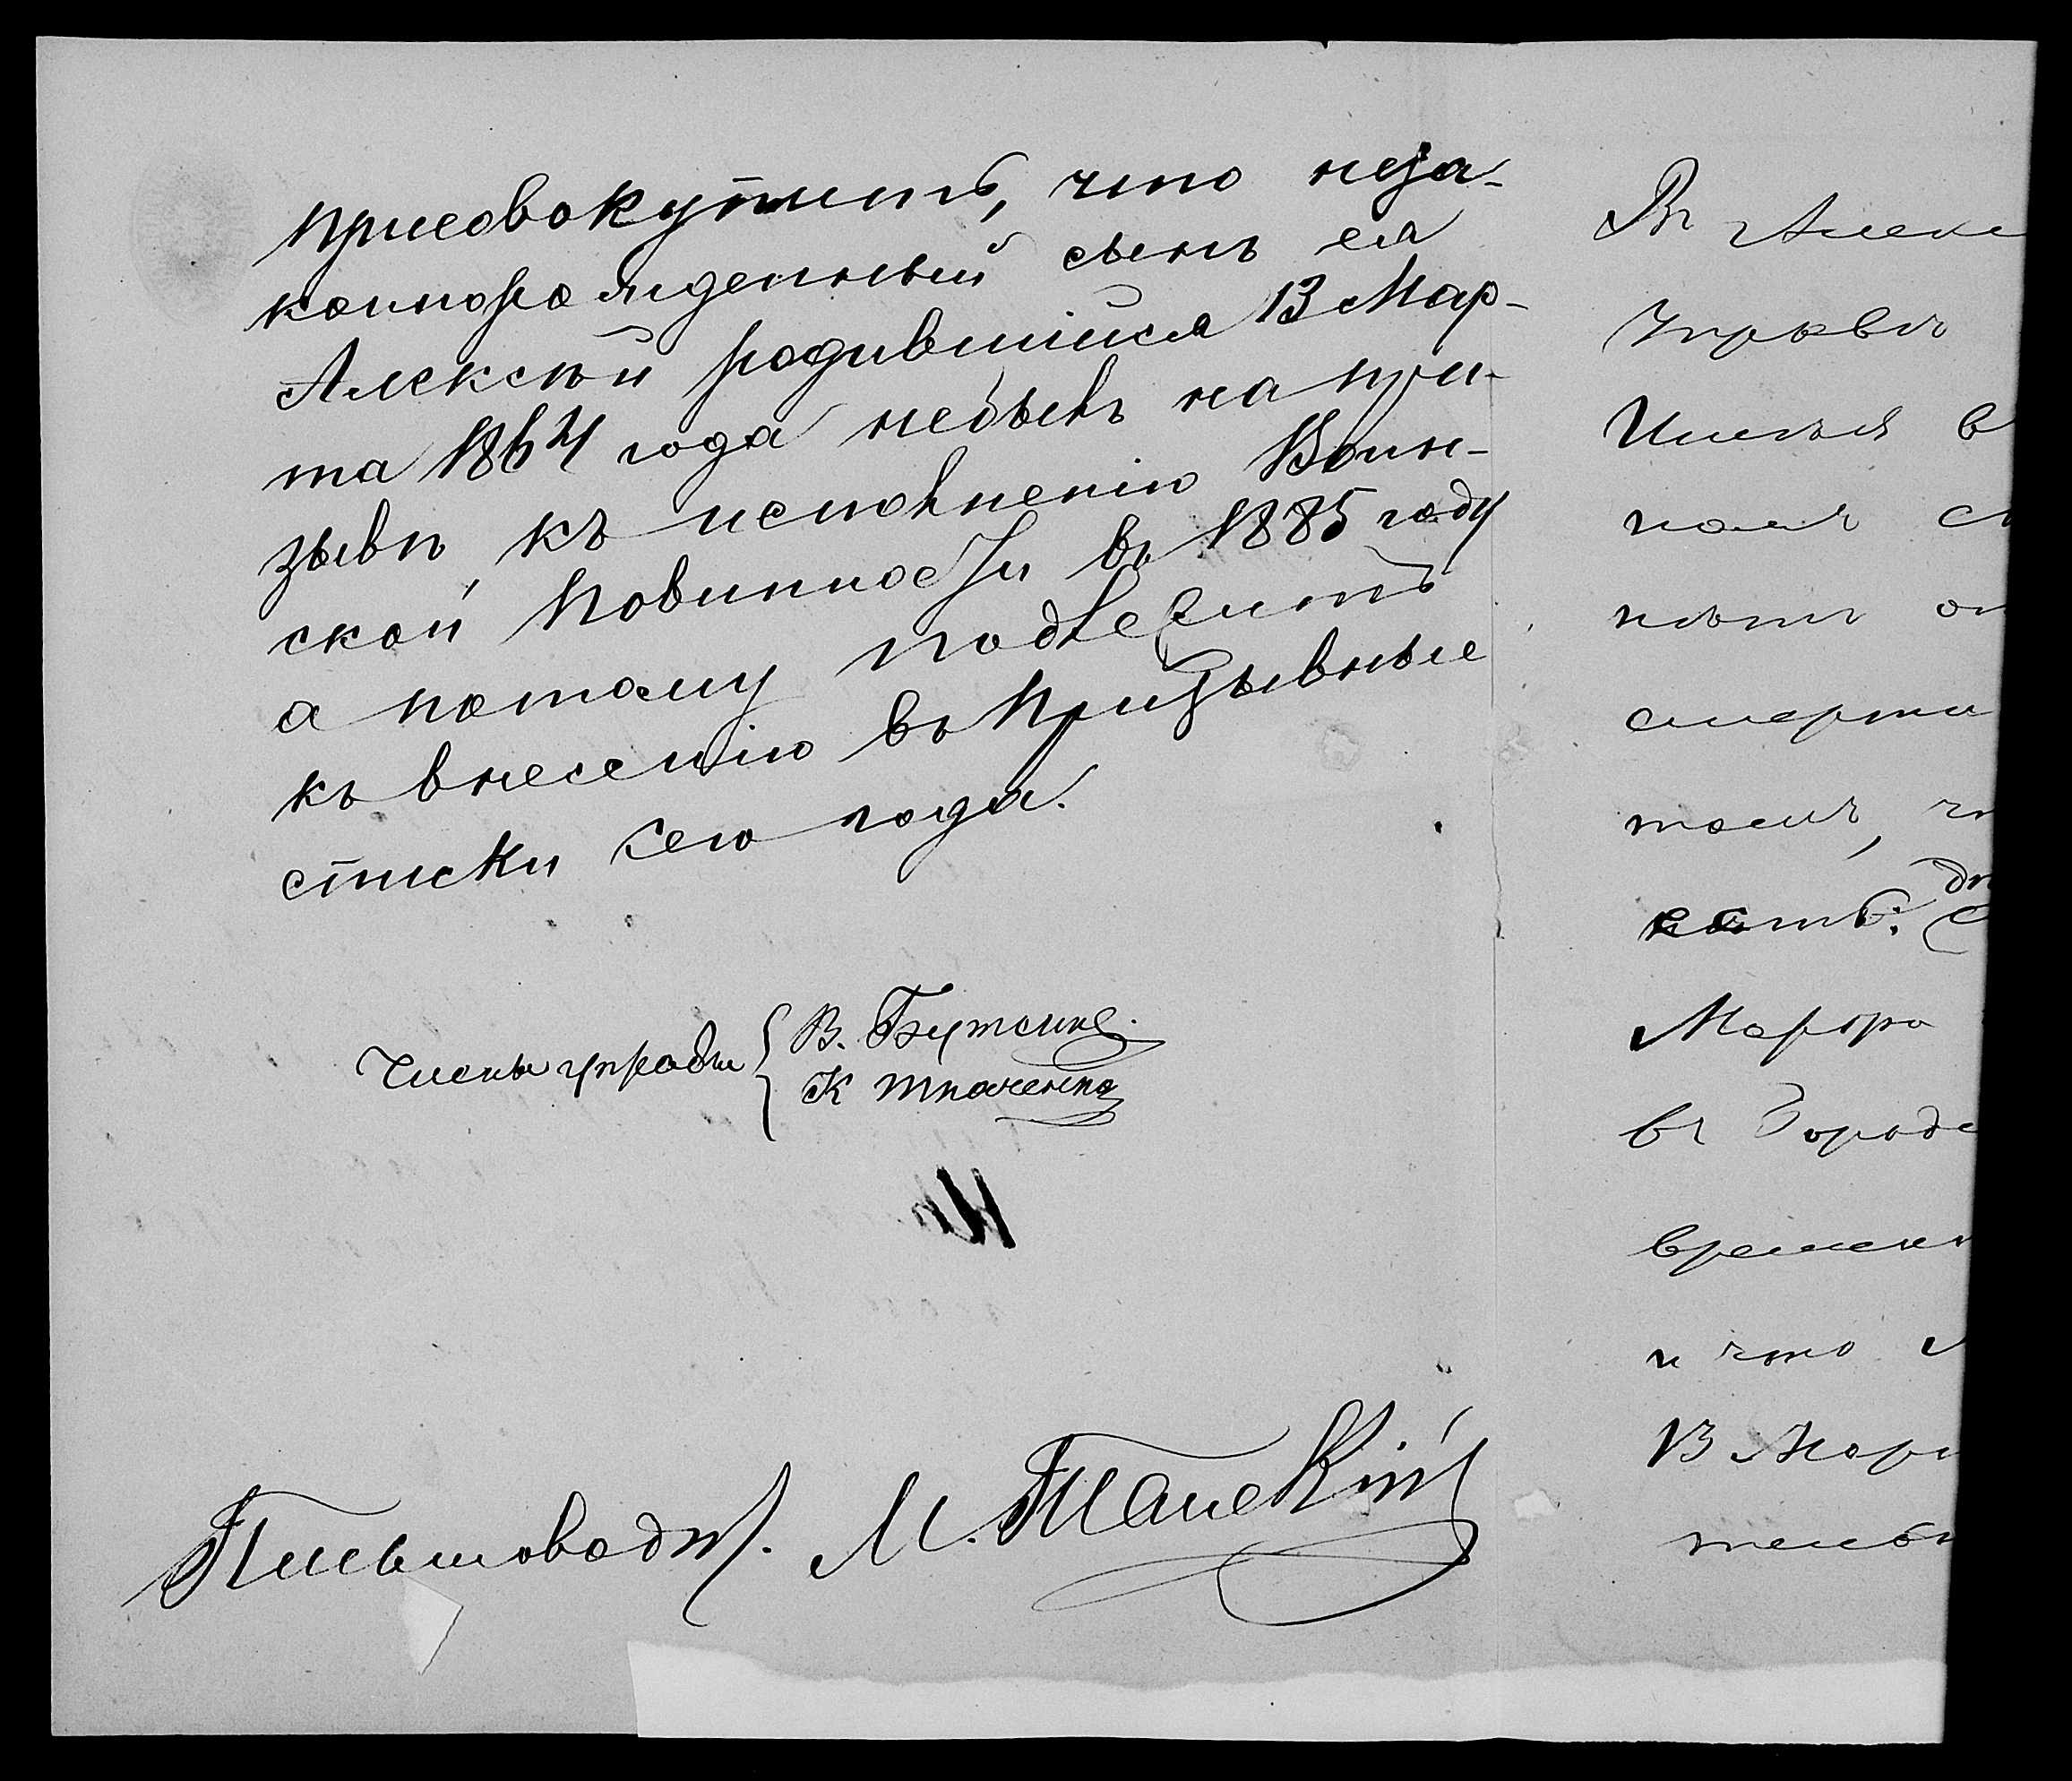 присовокупить, что неза-
коннорожденный сынъ ея
Алексѣй родившійся 13 Мар-
та 1864 года небылъ на при-
зывѣ къ исполненію Воин-
ской Повинности въ 1885 году
а потому подлежитъ
къ внесенію въ Призывные
списки сего года.
Члены управы { В. Бутенко
К Ткаченко
Письмоводит.
Въ Алекс
Управы
Имѣя в
номъ с
нѣтъ оп
смерти
томъ, чт
Марфа
въ Городе
времен
и что
13 Мар
тельн